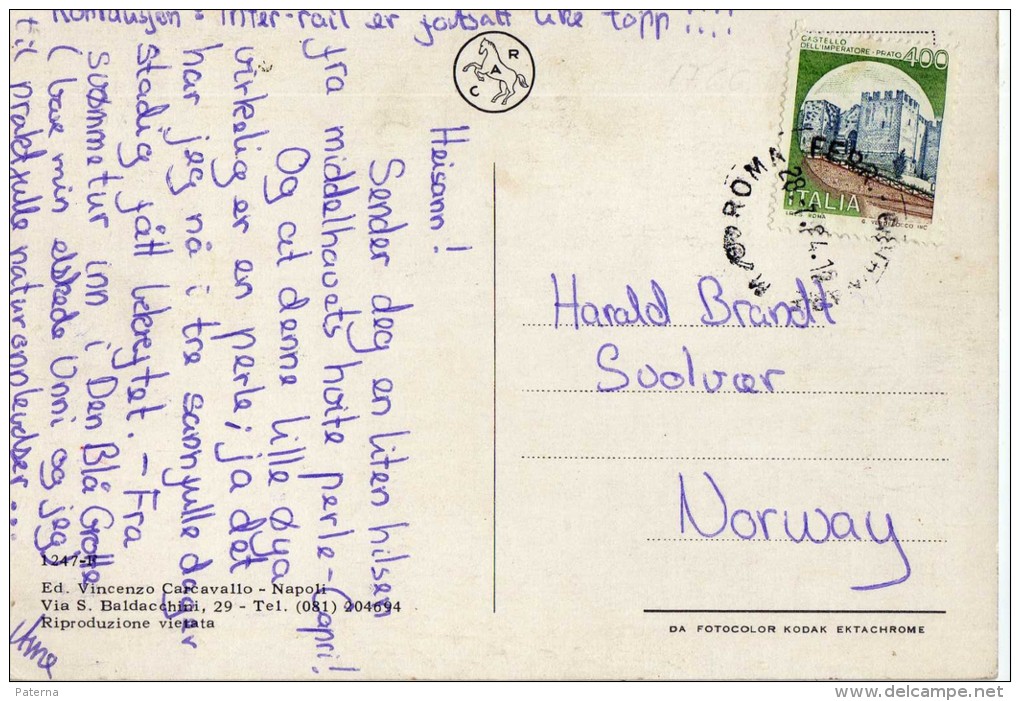 Heisann!
Sender deg en liten hilsen
fra middelhavets hvite perle - Capri!
Og at denne lille øya
virkelig er en perle; ja det
har jeg nå i tre sannfulle dager
stadig fått bekreftet. - Fra
svømmetur inn i Den Blå Grotte
(bare min elskede Unni og jeg)
til praktfulle naturopplevelser ...
Konklusjon: Inter-rail er fortsatt like topp!!!!
R
A
C
CASTELLO
DELL'IMPERATORE - PRATO 400
ITALIA
ROMA
FERR.
Harald Brandt
Svolvær
Norway
1247-F
Ed. Vincenzo Carcavallo - Napoli
Via S. Baldacchini, 29 - Tel. (081) 204694
Riproduzione vietata
DA FOTOCOLOR KODAK EKTACHROME
Paterna
http://www.delcampe.net